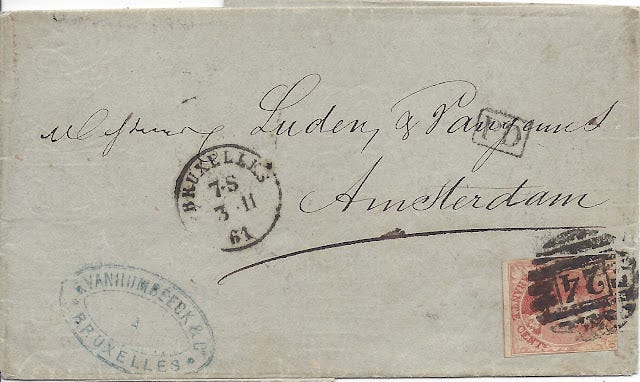 Messieurs Luden, &
PD
Amsterdam
BRUXELLES
7-S
3 11
61
24
VANHUMBEECK & Cº
BRUXELLES